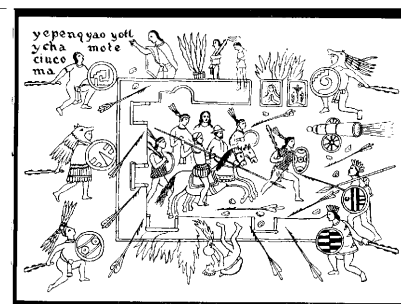 yepenqyao yotl
ycha mote
cuco
ma